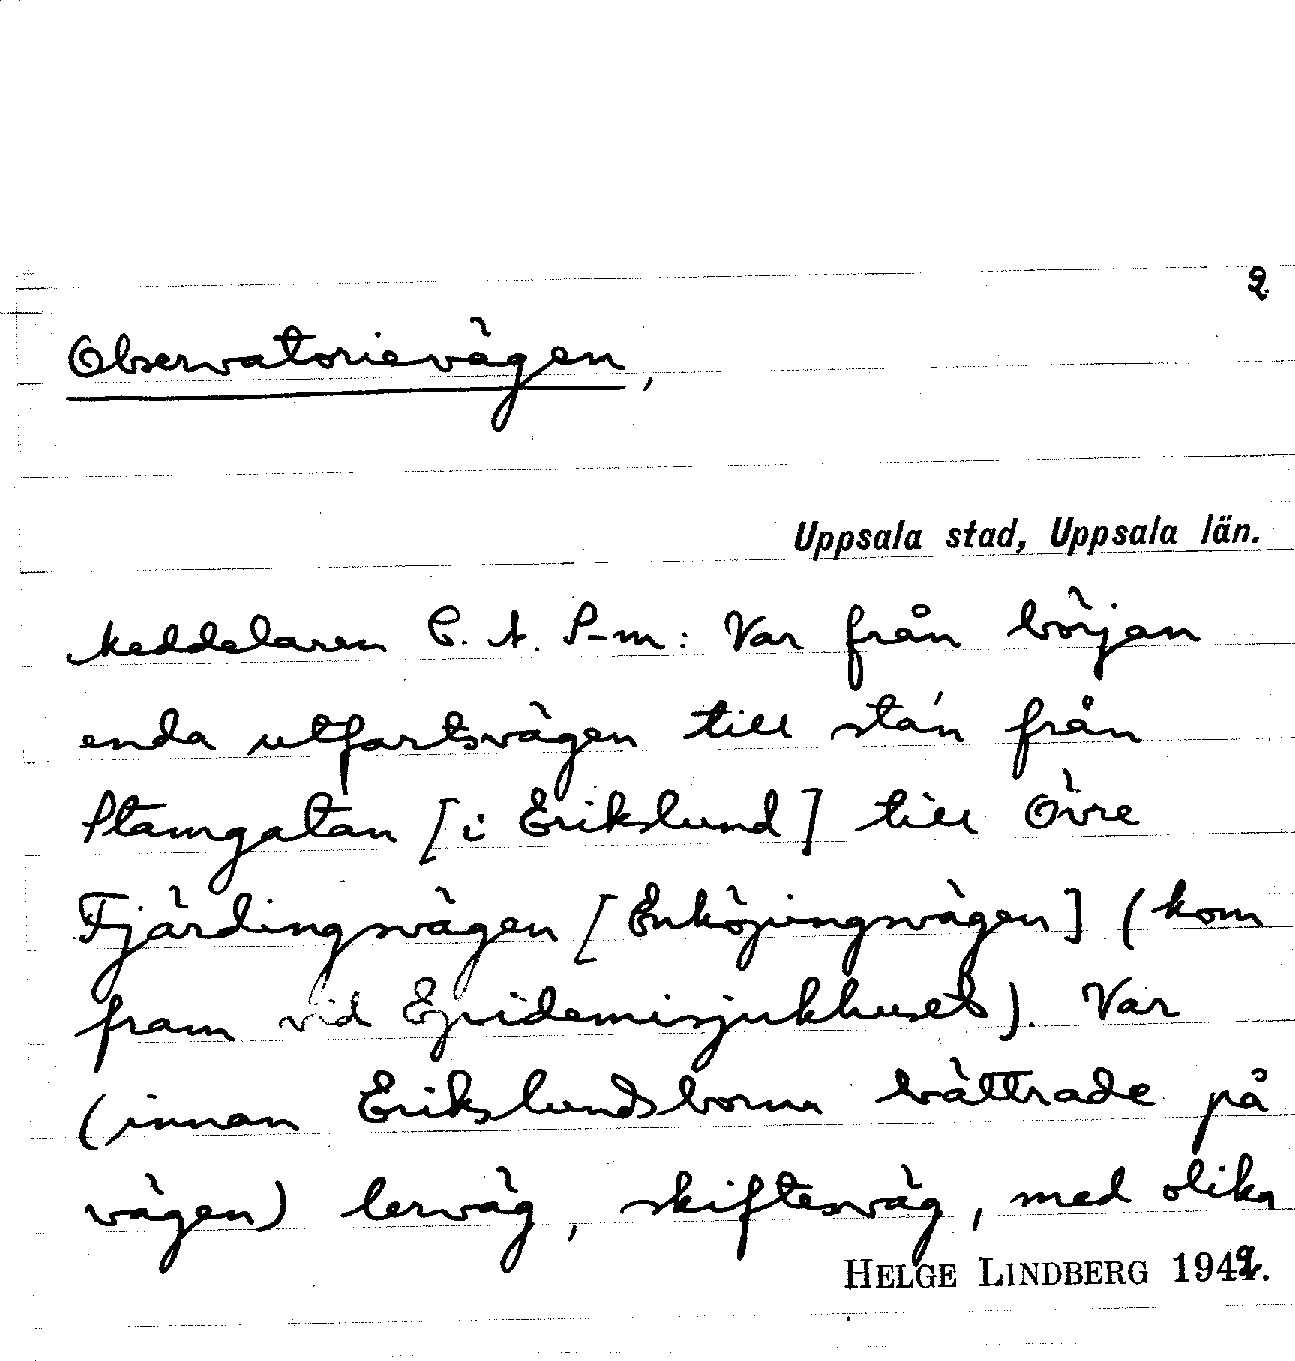 2.
Observatorievägen,
Uppsala stad, Uppsala län.
Meddelaren C. A. P-m: Var från början
enda utfartsvägen till sta'n från
Stamgatan [i Erikslund] till Övre
Fjärdingsvägen [Enköpingsvägen] (kom
fram vid Epidemisjukhuset). Var
(innan Erikslundsborna bättrade på
vägen) lerväg, skiftesväg, med olika
HELGE LINDBERG 1942.